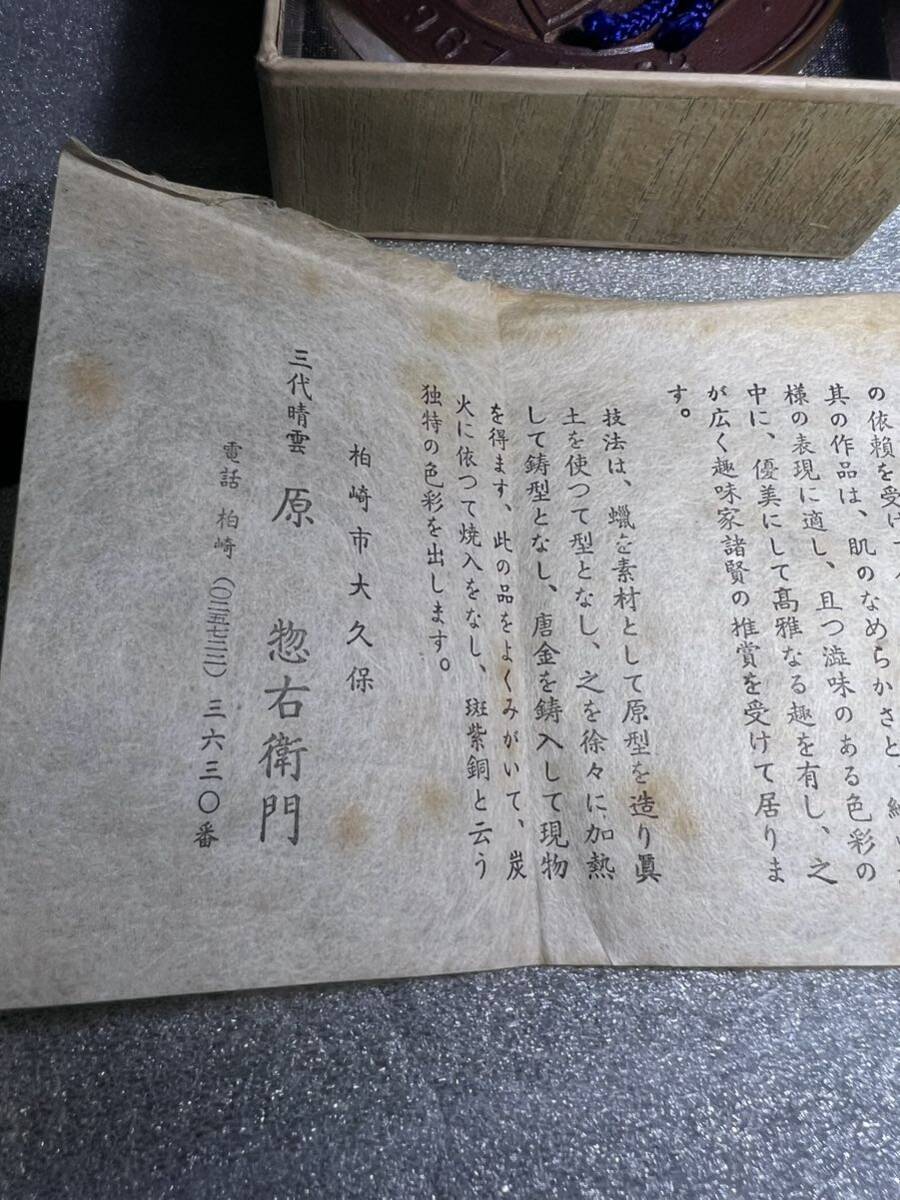 の依頼を受け
其の作品は、肌のなめらかさと、
様の表現に適し、且つ澁味のある色彩の
中に、優美にして高雅なる趣を有し、之
が広く趣味家諸賢の推賞を受けて居りま
す。
技法は、蠟を素材として原型を造り眞
土を使つて型となし、之を徐々に加熱
して鋳型となし、唐金を鋳入して現物
を得ます、此の品をよくみがいて、炭
火に依つて焼入をなし、斑紫銅と云う
独特の色彩を出します。
柏崎市大久保
三代晴雲 原 惣右衛門
電話 柏崎 (〇二五七二二) 三六三〇番
1967